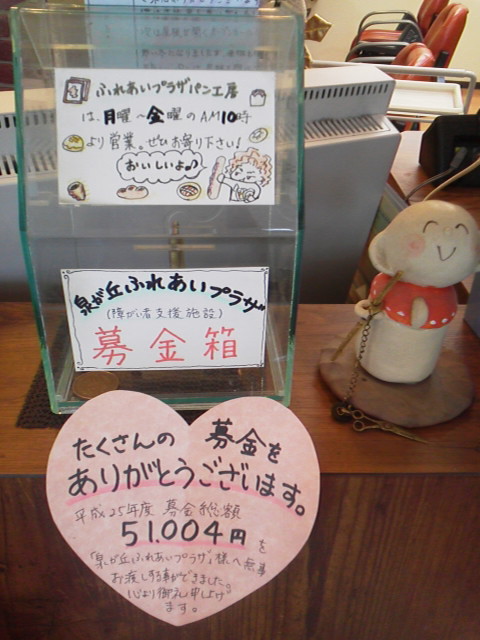 ふれあいプラザパン工房
は、月曜～金曜のAM10時
より営業。ぜひお寄り下さい！
おいしいよ♪
泉が丘ふれあいプラザ
(障がい者支援施設)
募金箱
たくさんの募金を
ありがとうございます。
平成25年度 募金総額
51.004円を
「泉が丘ふれあいプラザ」様へ無事
お渡しする事ができました。
心より御礼申し上げ
ます。